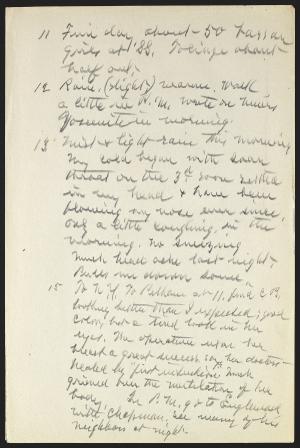 11 Fine day, about 50 Vassar
girls at SS. Forings about
half out;
12 Rain, (slight) warm, Walk
a little in P.M. write on Muirs
Yosemite in morning.
13 Mist & light rain this morning
My cold began with soar
throat on the 3d, soon settled
in my head & have been
blowing my nose ever since,
only a little coughing, in the
morning. No sneezing.
Much head ache last night,
Bulbs in down some,
15 To N.Y. To Pelham at 11, find C.B.
looking better than I expected; good
color, but a tired look in her
eyes. The operation upon her
breast a great success say her doctors
healed by first intention; much
grieved over the mutilation of her
body. In P.M. go to Englewood
with Chapman, see many of his
neighbors at night.